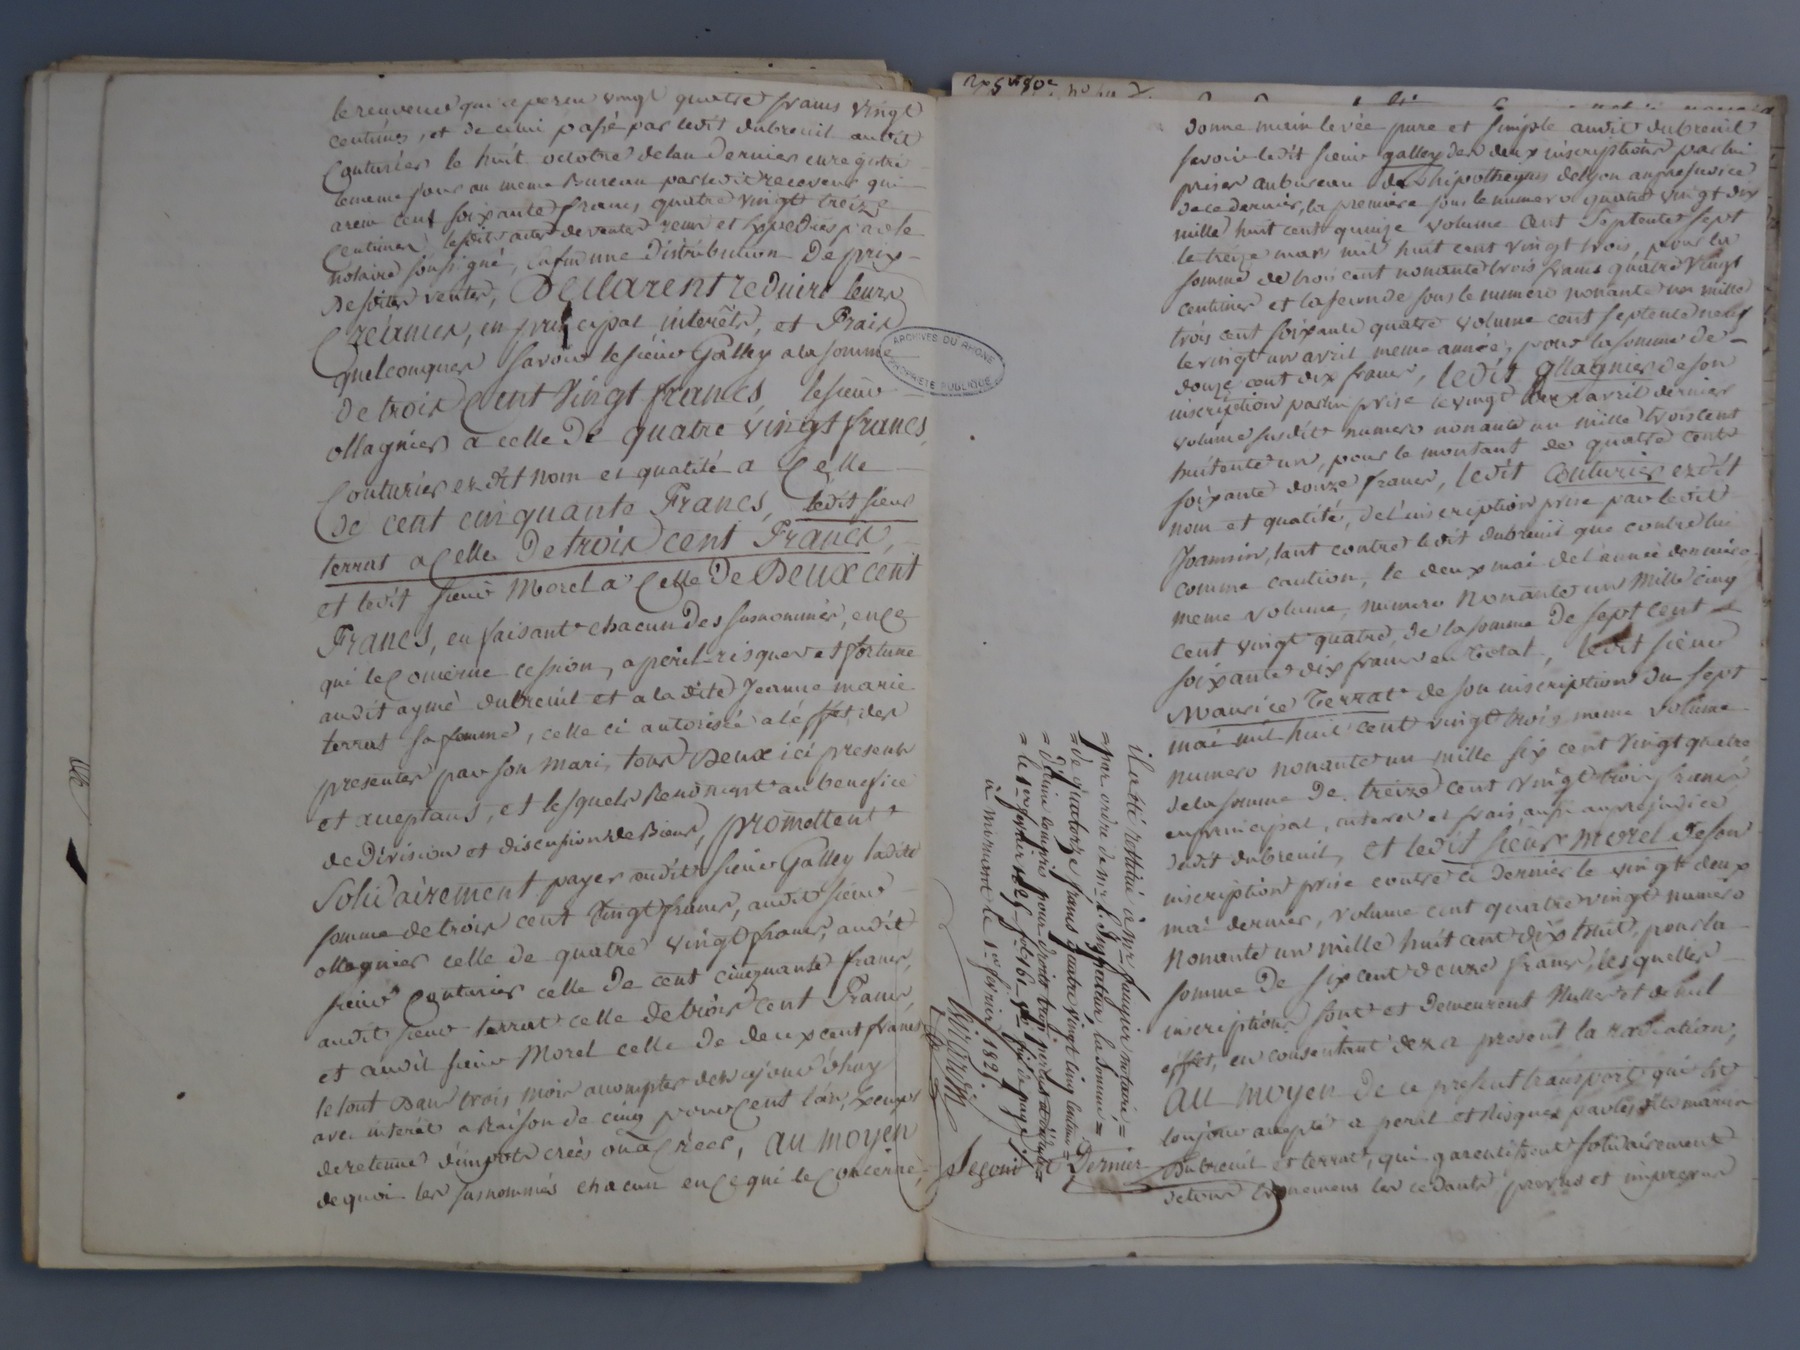 le receveur qui a perçu vingt quatre francs vingt
centimes, et de celui passé par ledit dubreuil audit
Couturier le huit octobre de lan dernier enregistré
lememe jour au meme Bureau par ledit receveur qui
a reçu cent soixante francs quatre vingt treize
Centimes lesdits actes de ventes reçus et expediés par le
notaire soussigné, enfin une Distribution De prix
Desdites ventes, Declarent reduire leurs
Créances, en principal intérêts, et Frais
quelconques savoir le sieur Galley a la somme
De trois Cent Vingt francs, le sieur
ollagnier a celle De quatre vingt francs,
Couturier esdit nom et qualité a Celle
De cent cinquante Francs, ledit sieur
terrat a Celle De trois cent Francs,
et ledit sieur Morel a Celle De Deux cent
Francs, en faisant chacun Des susnommés, en ce
qui le Concerne cession, a péril-risques et fortune
audit aymé dubreuil et a la dite Jeanne marie
terrat sa femme, celle ci autorisée a l'effet des
presentes par son mari, tous Deux ici presents
et acceptans, et lesquels Renonçant au benefice
de Division et discussion de Biens, promettent
Solidairement payer audit sieur Galley ladite
somme de trois cent Vingt francs, audit sieur
ollagnier celle de quatre vingt francs, audit
sieur Couturier celle De cent cinquante francs,
audit sieur terrat celle De trois cent Francs,
et audit sieur Morel celle De deux cent francs
le tout Dans trois mois a compter de ce jour d'huy
avec interêt a Raison de cinq pour Cent l'an, Exempt
de retenue d'impots créés ou à Créer, au moyen
de quoi les susnommés chacun en ce qui le Concerne,
ARCHIVES DU RHONE
PROPRIETE PUBLIQUE
donne main levée pure et simple audit dubreuil
savoir ledit sieur galley des deux inscriptions par lui
prises au bureau des hipotheques de lyon au prejudice
de ce dernier, la premiere sous le numero quatre vingt dix
mille huit cent quinze volume Cent Septente Sept
le treize mars mil huit cent vingt trois, pour la
somme de trois cent nonante trois francs quatre Vingt
centimes et la seconde sous le numero nonante un mille
trois cent soixante quatre volume cent septente neuf
le vingt un avril meme année, pour la somme de
douze cent dix francs, ledit ollagnier de son
inscription par lui prise le vingt deux avril dernier
volume susdit numero nonante un mille trois cent
huitente un, pour le montant de quatre cent
soixante douze francs, ledit Couturier esdit
nom et qualité, de l'inscription prise par ledit
Joannin, tant contre ledit dubreuil que contre lui
comme caution, le deux mai de l'année derniere
meme volume, numero Nonante un Mille cinq
cent vingt quatre, de la somme De sept cent
soixante dix francs en total, ledit sieur
Maurice Terrat de son inscription du sept
mai mil huit cent vingt trois meme volume
numero nonante un mille six cent vingt quatre
de la somme De treize cent vingt trois francs
en principal, interet et frais, aussi au prejudice
dudit dubreuil, et ledit sieur morel de son
inscription prise contre ce Dernier le vingt deux
mai dernier, volume cent quatre vingt numero
Nonante un mille huit cent dix huit, pour la
somme De six cent douze francs, lesquelles
inscriptions sont et demeurent Nulles et de nul
effet, en consentant des a present la radiation,
au moyen De ce present transport qui est
toujours accepté a peril et risques par lesdits mariés
Dubreuil et terrat, qui garentissent solidairement
de tous evenemens les cedants prevus et imprevus
il a été restitué à mr. faugier notaire, =
= par ordre de mr. L'Inspecteur, la somme =
= de quatorze francs quatre vingt cinq centimes =
à mornant le 1er février 1825.